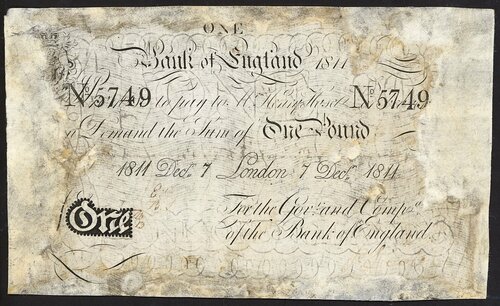 ONE
Bank of England 1811
No. 5749 to pay to Mr. Henry Hase No. 5749
Demand the Sum of One Pound
1811 Decr. 7 London 7 Decr. 1811
For the Govr. and Compa.
of the Bank of England
One